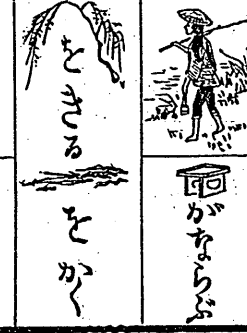 がならぶ
をきる
をかく